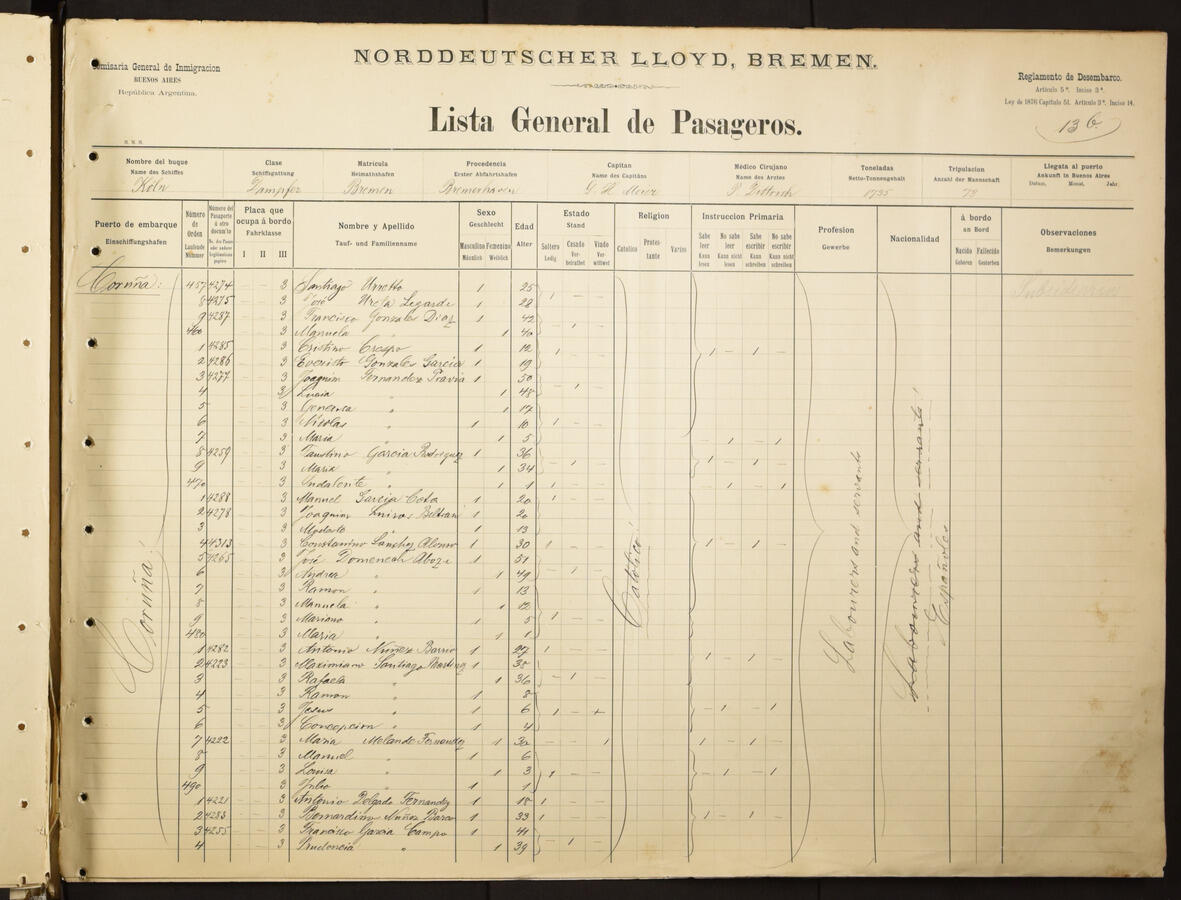 NORDDEUTSCHER LLOYD, BREMEN.
Comisaria General de Inmigracion
BUENOS AIRES
República Argentina.
Reglamento de Desembarco.
Artículo 5º. Inciso 3º.
Ley de 1876 Capítulo 51. Artículo 3º. Inciso 14.
136
Lista General de Pasageros.
Nombre del buque Clase Matricula Procedencia Capitan Médico Cirujano Toneladas Tripulacion Llegata al puerto
Name des Schiffes Schiffsgattung Heimathshafen Erster Abfahrtshafen Name des Capitäns Name des Arztes Netto-Tonnengehalt Anzahl der Mannschaft Ankunft in Buenos Aires
Datum, Monat, Jahr.
Köln Dampfer Bremen Bremerhaven Meier 1735 73
Puerto de embarque Número de Orden Placa que ocupa á bordo Nombre y Apellido Sexo Edad Estado Religion Instruccion Primaria Profesion Nacionalidad á bordo Observaciones
Einschiffungshafen Laufende Nummer Fahrklasse Tauf- und Familienname Geschlecht Alter Stand Gewerbe an Bord Bemerkungen
I II III Masculino Femenino Soltero Casado Viudo Catolico Protestante Varios Sabe leer No sabe leer Sabe escribir No sabe escribir Nacido Fallecido
Männlich Weiblich Ledig Verheirathet Verwittwet Kann lesen Kann nicht lesen Kann schreiben Kann nicht schreiben Geboren Gestorben
Coruña: 457 4274 3 Santiago 1 25
8 4275 3 José 1 28
9 4287 3 Francisco Gonzales Diaz 1 42
460 3 Manuela " 1 40
1 4285 3 Cristino Crespo 1 12
2 4286 3 Evaristo Gonzales Garcia 1 19
3 4277 3 Joaquin Fernandez Pravia 1 50
4 3 Luisa " 1 48
5 3 " 1 17
6 3 Nicolas " 1 10
7 3 Maria " 1 5
8 4259 3 Faustino Garcia Rodriguez 1 36
9 3 Maria " 1 34
470 3 " 1 1
1 4288 3 Manuel Garcia 1 20
2 4278 3 Joaquin Beltran 1 20
3 3 Modesto " 1 13
4 4313 3 Constantino Sanchez Alonso 1 30
5 4265 3 José Domenech 1 51
6 3 Andrea " 1 49
7 3 Ramon " 1 13
8 3 Manuela " 1 12
9 3 Mariano " 1 5
480 3 Maria " 1 1
1 4282 3 Antonio Nuñez Barro 1 27
2 4223 3 Maximiano Santiago Martinez 1 30
3 3 Rafaela " 1 36
4 3 Ramon " 1 8
5 3 Jesus " 1 6
6 3 Concepcion " 1 4
7 4222 3 Maria Fernandez 1 32
8 3 Manuel " 1 6
9 3 Louisa " 1 3
490 3 Julio " 1 1
1 4221 3 Antonio Delgado Fernandez 1 18
2 4283 3 Bernardino Nuñez 1 33
3 4255 3 Francisco Garcia Campo 1 41
4 3 Prudencia " 1 39
Coruña
Católico
Labourers and servants
Labourers and servants
Españoles